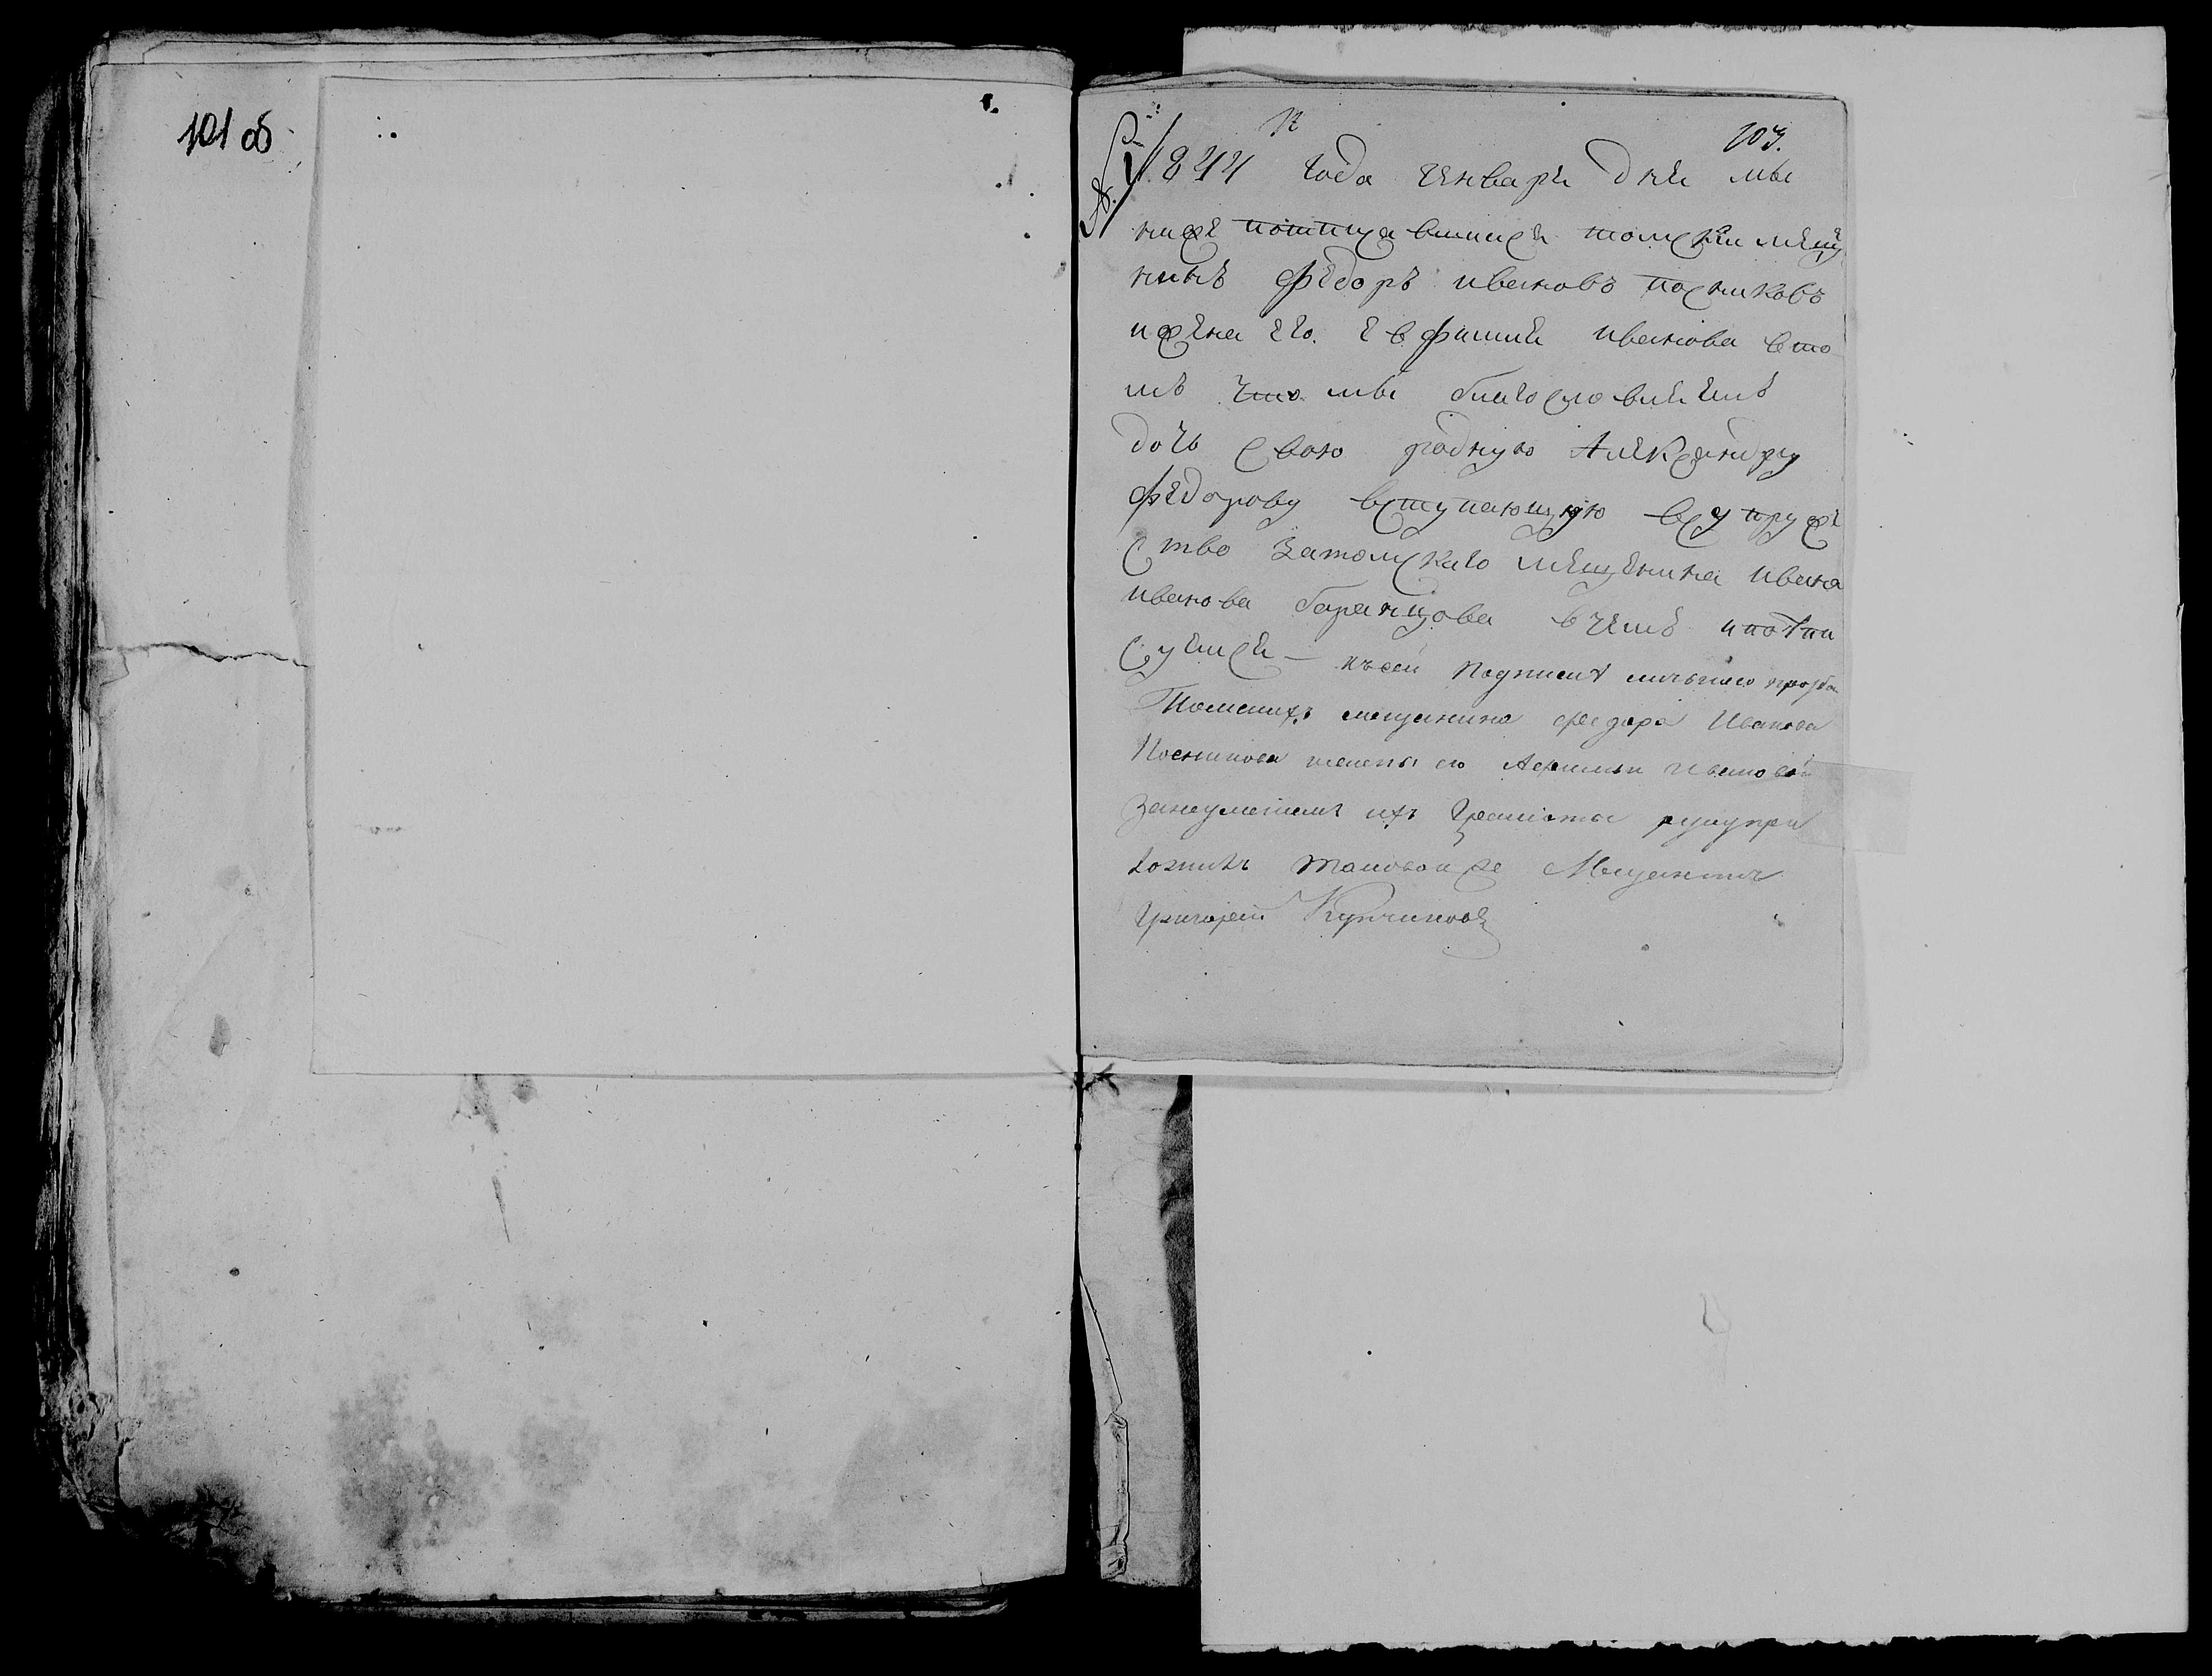 101 об
103.
1844 года генваря дня мы
ниже потписавшиися томския меща
нинъ федоръ ивановъ посниковъ
и жена его. Евфимия иванова в то
мъ что мы благословляемъ
дочь свою родную Александру
федорову вступающую в супруже
ство за томскаго мещенина ивана
иванова баранцова в чемъ и потпи
суемся — къ сей подписке личьною прозбою
Томскихъ мещанина федора Иванова
Посникова жены его Афимьи Ивановой
за неумениемъ ихъ грамоты руку при
ложилъ таковой же Мещанинъ
Григорей